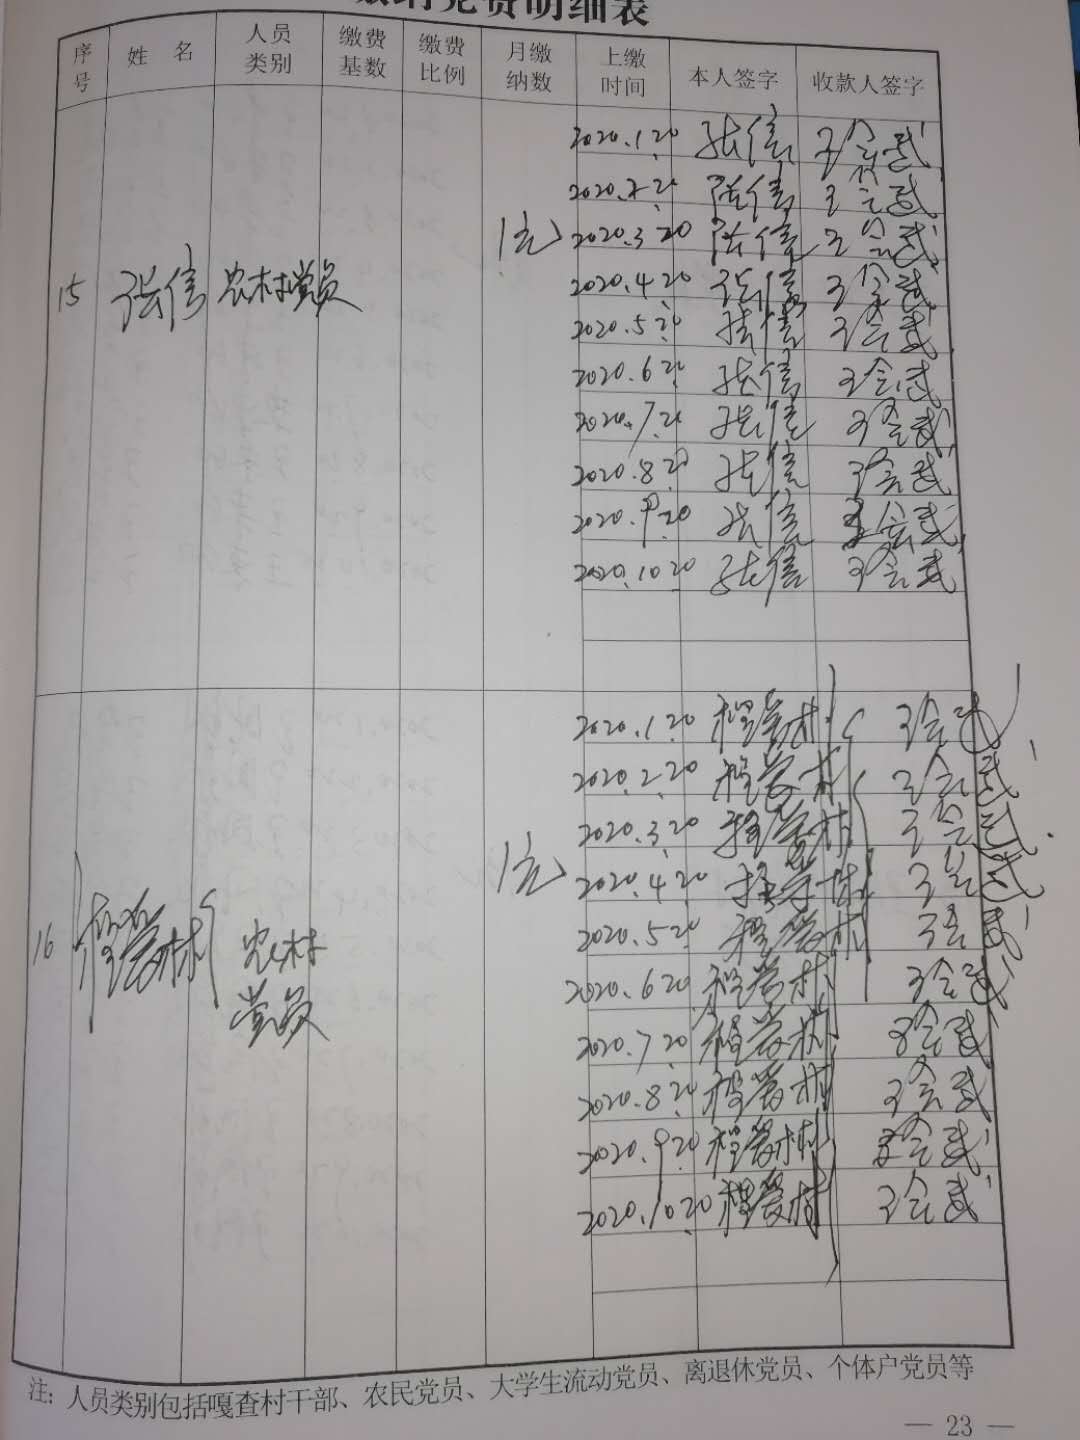 缴纳党费明细表
序号 姓 名 人员类别 缴费基数 缴费比例 月缴纳数 上缴时间 本人签字 收款人签字
2020.1.20 张信 王会武
2020.2.20 张信 王会武
1元 2020.3.20 张信 王会武
15 张信 农村党员 2020.4.20 张信 王会武
2020.5.20 张信 王会武
2020.6.20 张信 王会武
2020.7.20 张信 王会武
2020.8.20 张信 王会武
2020.9.20 张信 王会武
2020.10.20 张信 王会武
2020.1.20 程营村 王会武
2020.2.20 程营村 王会武
2020.3.20 程营村 王会武
1元 2020.4.20 程营村 王会武
16 程营村 农村党员 2020.5.20 程营村 王会武
2020.6.20 程营村 王会武
2020.7.20 程营村 王会武
2020.8.20 程营村 王会武
2020.9.20 程营村 王会武
2020.10.20 程营村 王会武
注: 人员类别包括嘎查村干部、农民党员、大学生流动党员、离退休党员、个体户党员等
— 23 —